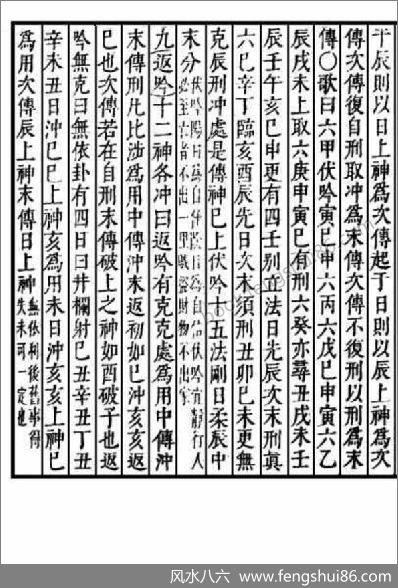 于辰則以日上神爲次傳起于日則以辰上神爲次
傳次傳復自刑取冲爲末傳次傳不復刑以刑爲末
傳〇歌曰六甲伏吟寅巳申六丙六戊巳申寅六乙
辰戌未上取六庚申寅巳有刑六癸亦尋丑戌未壬
辰壬午亥巳申更有四壬别在法日先辰次末刑眞
六巳辛丁臨亥酉辰先日次末須刑丑卯巳未更無
克辰刑冲處是傳神巳上伏吟十五法剛日柔辰中
末分
九返吟十二神各冲曰返吟有克克處爲用中傳沖
末傳刑凡比涉爲用中傳沖末返初如巳沖亥亥返
巳也次傳若在自刑末傳破上之神如酉破子也返
吟無克曰無依卦有四日曰井欄射巳丑辛丑丁丑
辛未丑日沖巳巳上神亥爲用未日沖亥亥上神巳
爲用次傳辰上神末傳日上神
風水八六 www.fengshui86.com